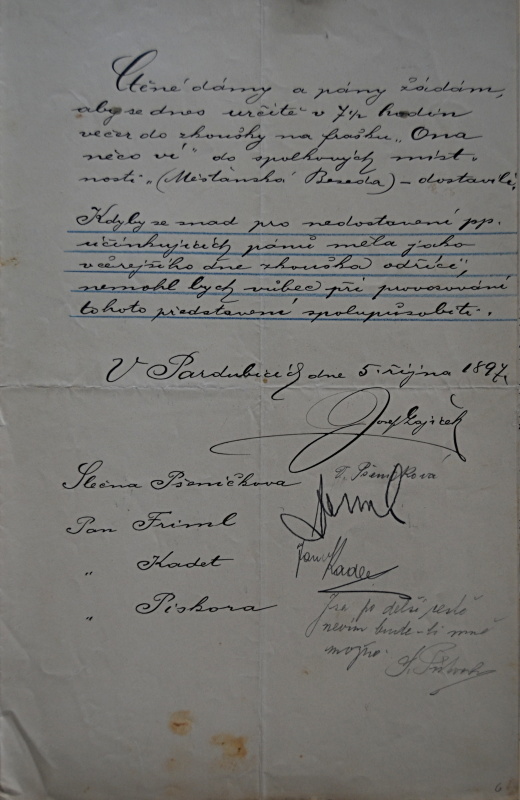 Ctěné dámy a pány žádám,
aby se dnes určitě v 7½ hodin
večer do zkoušky na frašku „Ona
něco ví" do spolkových míst-
ností „(Měšťanská Beseda) – dostavili.
Kdyby se snad pro nedostavení pp.
účinkujících pánů měla jako
včerejšího dne zkouška odříci,
nemohl bych vůbec při provozování
tohoto představení spolupůsobiti.
V Pardubicích dne 5. října 1897.
Josef Zajíček
Slečna Pšeničkova
Pan Friml
„ Kadet
„ Piskora
T. Pšeničková
Friml
Kadet
po delší cestě
nevím bude-li mně
možno.